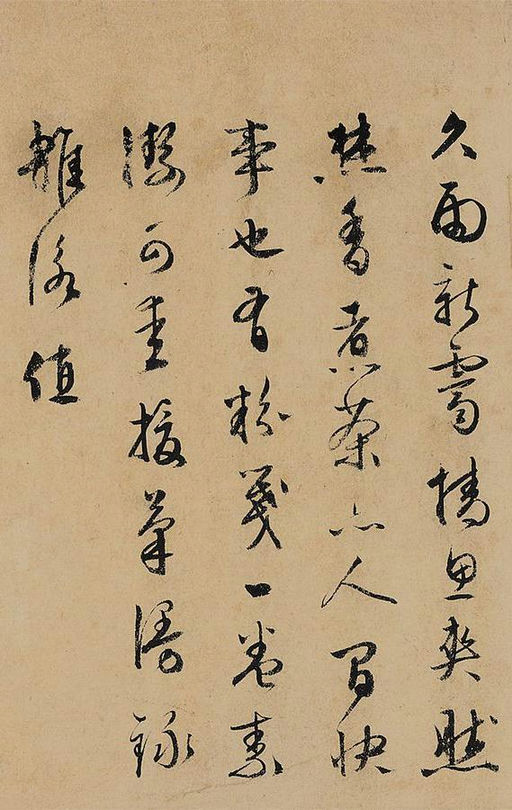 久雨新霽情思爽然
焚香煮茶亦人間快
事也有粉箋一卷素
潔可援筆漫錄
雜詠值